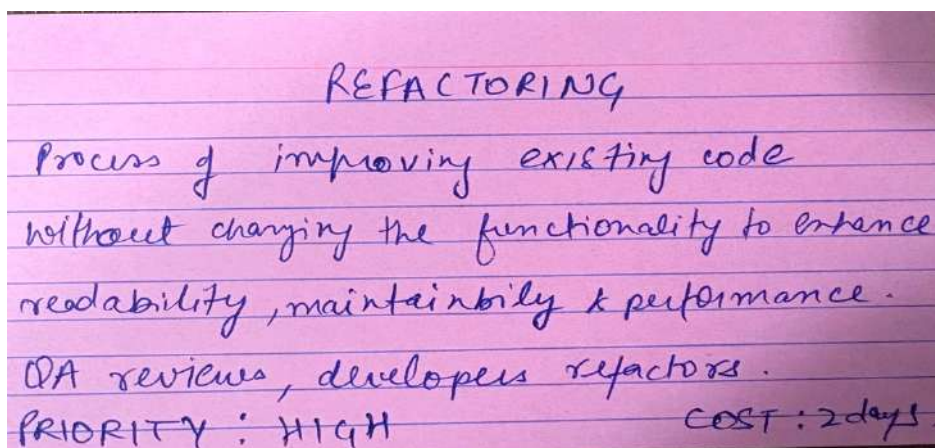 REFACTORING
Process of improving existing code
without changing the functionality to enhance
readability, maintainbily & performance.
QA reviews, developers refactors.
PRIORITY : HIGH COST : 2 days